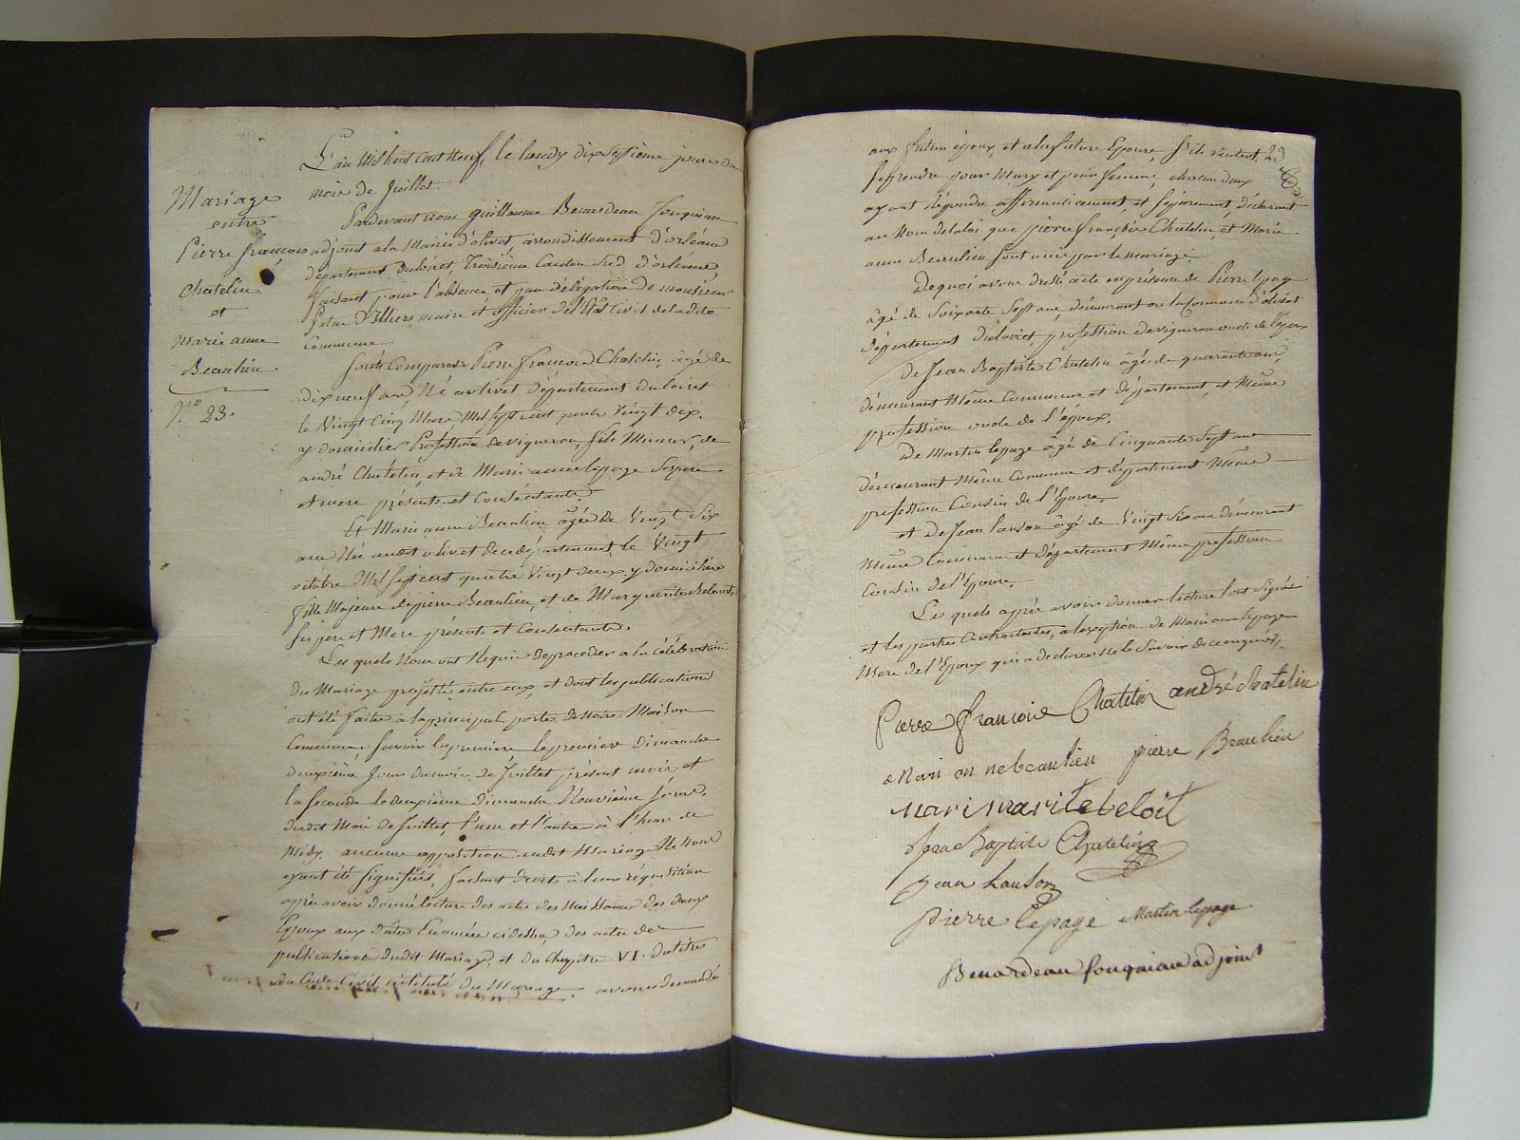 Mariage
entre
Pierre françois
Chatelin
et
Marie anne
Beaulieu
N.ro 23.
L'an Mil huit cent Neuf, le lundy dix Septième jour du
mois de Juillet.
Pardevant nous guillaume Benardeau fouqueau
adjoint a la Mairie d'olivet, arrondissement d'orléans
département du loiret, troisième Canton Sud d'orléans,
faisant pour l'absence et par délégation de monsieur
maire et officier de l'Etat Civil de ladite
Commune
Sont Comparus Pierre françois Chatelin, âgé de
dix neuf ans, Né a olivet Département du loiret
le Vingt Cinq Mars Mil Sept cent quatre Vingt dix.
y domicilié Profession de vigneron, fils Mineur, de
andré Chatelin, et de Marie anne lepage Ses pere
et mere présents et Consentants.
Et Marie anne Beaulieu âgée de Vingt Six
ans Née audit olivet de ce département, le Vingt
octobre Mil Sept cent quatre Vingt deux, y domiciliée
fille Majeure de pierre Beaulieu, et de Marguerite Beloit
Ses pere et Mere présents et Consentants.
Les quels Nous ont Requis de procéder a la célébration
du Mariage projetté entre eux, et dont les publications
ont été faites a la principale porte de Notre Maison
Commune; Savoir la premiere le premier Dimanche
deuxième Jour du mois de Juillet présent mois, et
la Seconde le deuxième Dimanche Neuvième Jour
dudit Mois de Juillet, l'une et l'autre à l'heure de
Midy. aucune opposition audit Mariage Ne Nous
ayant été Signifiée, faisant droit à leur réquisition
après avoir donné lecture des actes de Naissance des deux
Epoux aux Dates Enoncées ci dessus, des actes de
publications dudit Mariage, et du Chapitre VI. du titre
du Code Civil intitulé du Mariage. avons demandé
aux futur époux, et a la future Epouse, S'ils veulent
Se prendre pour Mary et pour femme, chacun d'eux
ayant répondu affirmativement, et Séparément, déclarons
au Nom de la loi que pierre françois Chatelin, et Marie
anne Beaulieu Sont unis par le mariage.
De quoi avons dressé acte en présence de Pierre lepage
âgé de Soixante Sept ans, demeurant en la Commune d'olivet
Département du loiret profession de vigneron oncle de l'époux
De Jean Baptiste Chatelin âgé de quarante ans,
demeurant Même Commune et département, et Même
profession oncle de l'époux.
De Martin lepage âgé de Cinquante Sept ans
demeurant Même Commune et département Même
profession Cousin de l'Epouse,
et De Jean lanson âgé de Vingt Six ans demeurant
Même Commune et département Même profession
Cousin de l'Epouse.
Les quels après avoir donné lecture l'ont Signé
et les parties Contractantes, a l'exception de Marie anne lepage
Mere de l'Epoux qui a declaré Ne le Savoir de ce enquise.
Pierre françois Chatelin andré chatelin
Mari an ne beaulieu pierre Beaulieu
mari marite beloit
Jean Baptiste Chatelin
jean lanson
pierre lepage Martin lepage
Benardeau fouqueau adjoint